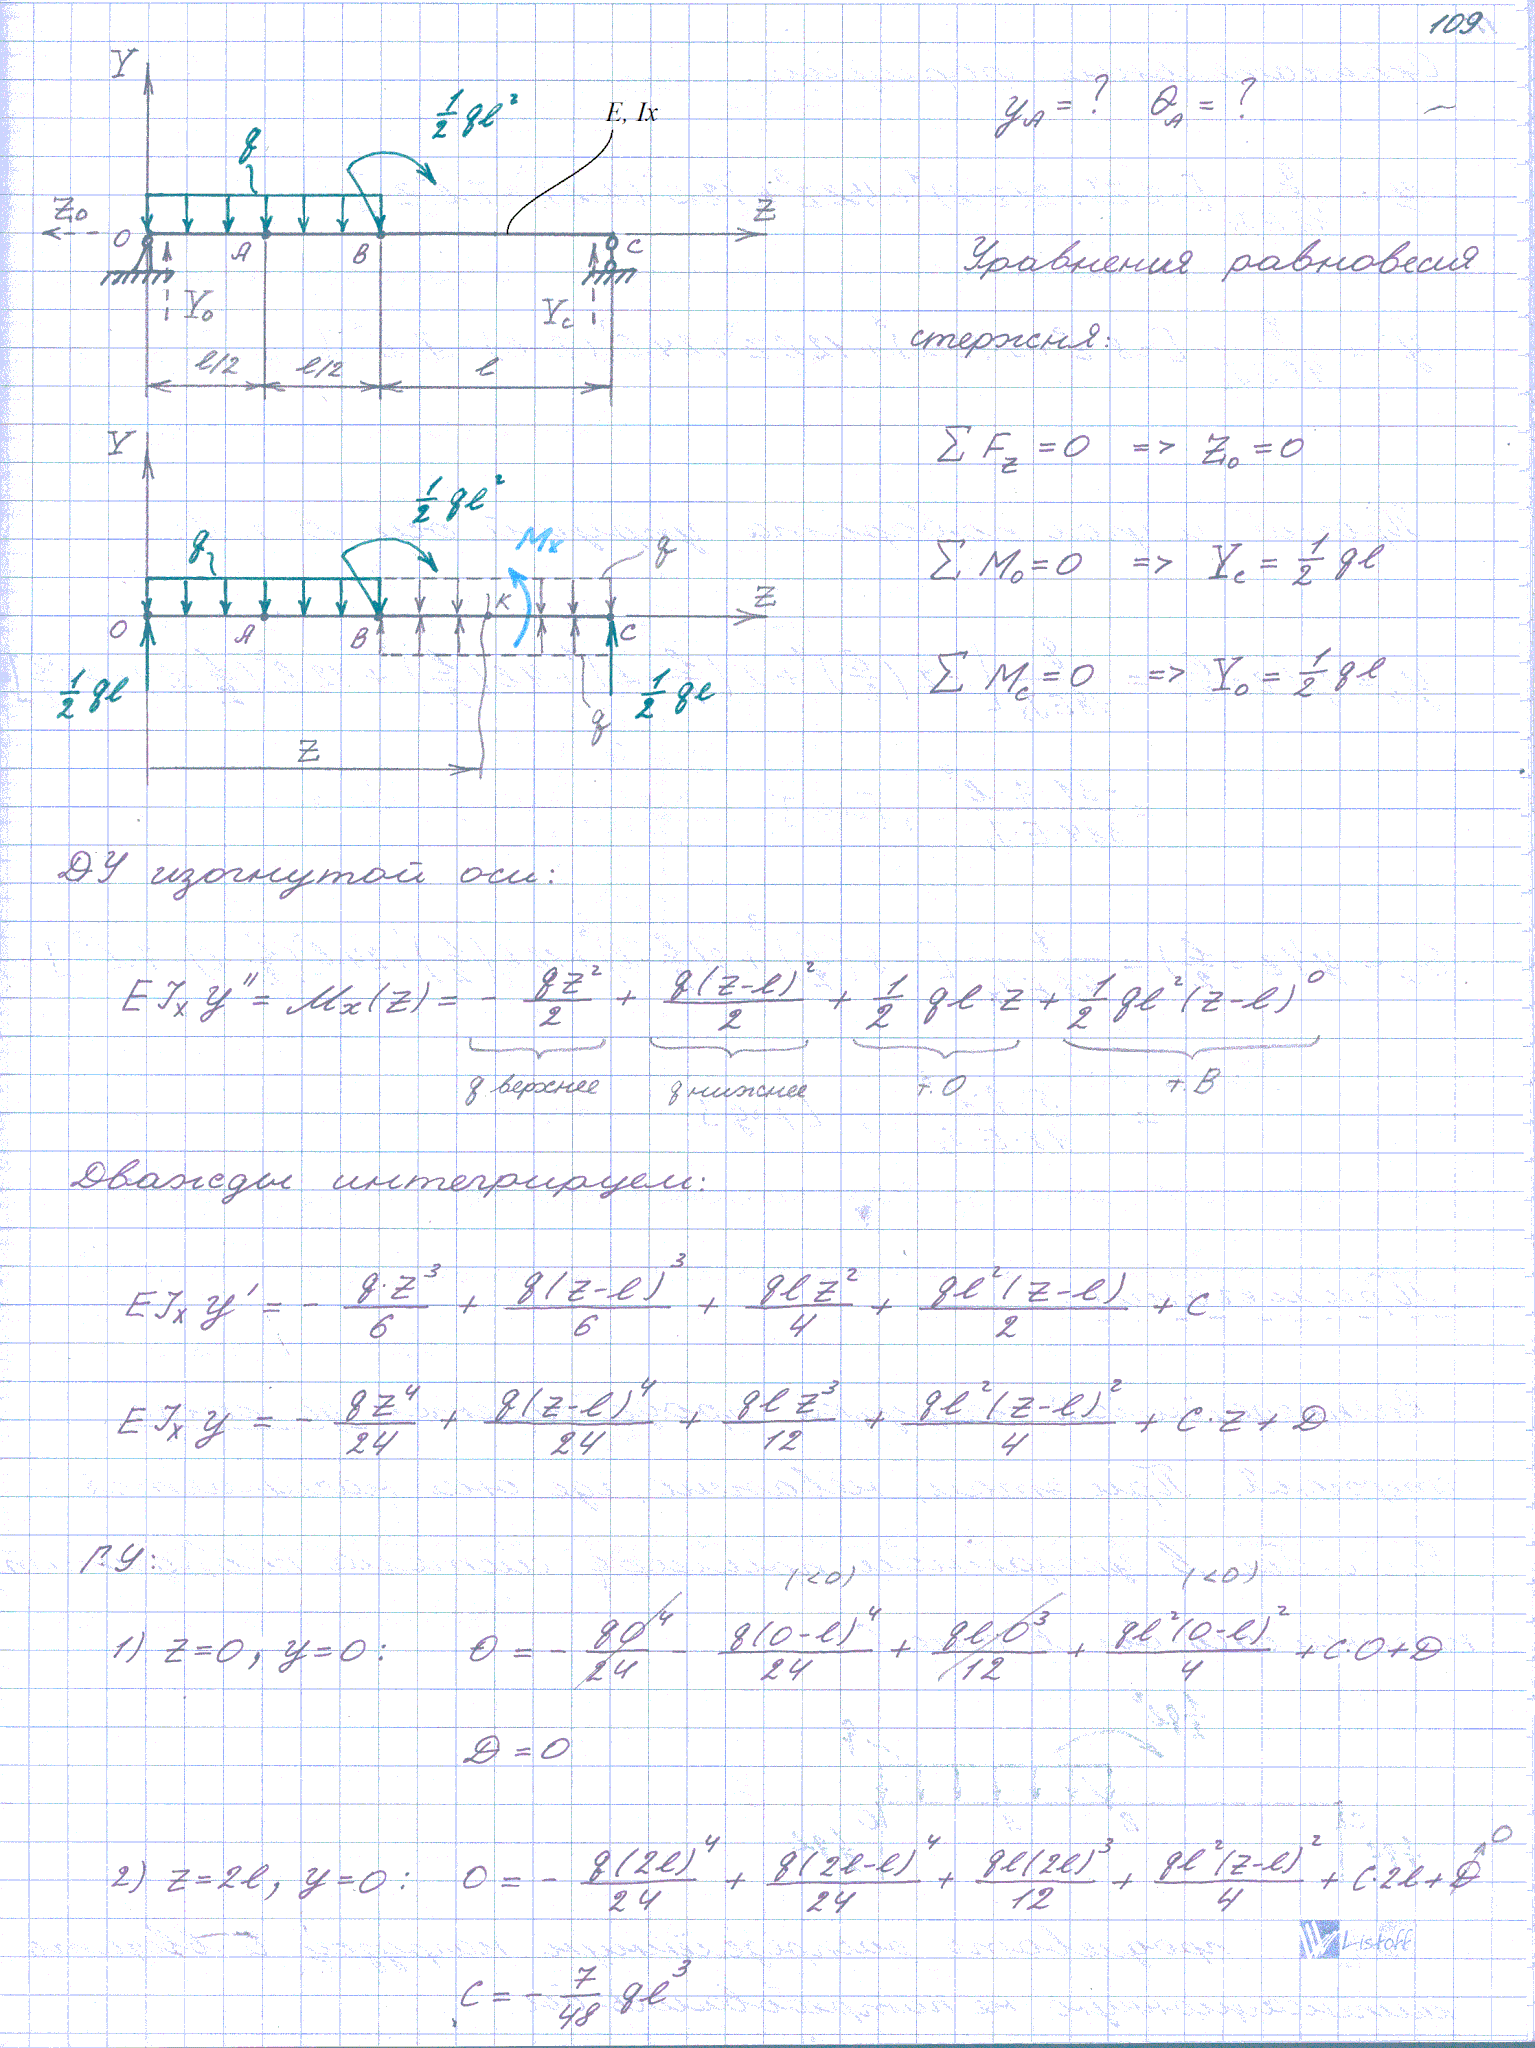 109
Y
1/2 ql²
E, Ix
y_A = ? θ_A = ?
q
Z₀
O
A
B
C
Z
Y₀
Y_c
l/2
l/2
l
Уравнения равновесия
стержня:
Σ F_z = 0 => Z₀ = 0
Σ M₀ = 0 => Y_c = 1/2 ql
Σ M_c = 0 => Y₀ = 1/2 ql
Y
1/2 ql²
q
Mx
q
K
Z
O
A
B
C
1/2 ql
1/2 ql
q
Z
ДУ изогнутой оси:
EJx y'' = Mx(z) = - qz²/2 + q(z-l)²/2 + 1/2 ql·z + 1/2 ql²(z-l)⁰
q верхнее q нижнее т.О т.В
Дважды интегрируем:
EJx y' = - q·z³/6 + q(z-l)³/6 + qlz²/4 + ql²(z-l)/2 + C
EJx y = - qz⁴/24 + q(z-l)⁴/24 + qlz³/12 + ql²(z-l)²/4 + C·z + D
Г.У:
(<0) (<0)
1) z=0, y=0: 0 = - q0⁴/24 - q(0-l)⁴/24 + ql·0³/12 + ql²(0-l)²/4 + C·0 + D
D = 0
2) z=2l, y=0: 0 = - q(2l)⁴/24 + q(2l-l)⁴/24 + ql(2l)³/12 + ql²(z-l)²/4 + C·2l + D 0
Listoff
C = - 7/48 ql³